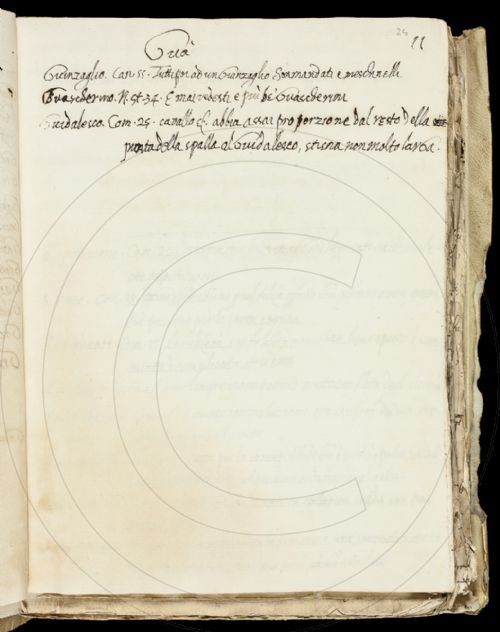 24
11
Gua
Guinzaglio. Can. 55. Tutti poi ad un Guinzaglio son mandati e meschinelli
Guascherino. N. st. 34. E mai vedesti e più bè Guascherini
Guidalesco. Com. 25. cavallo cḣ. abbia assai proporzione dal resto della
punta della spalla al Guidalesco, stiena non molto larga.